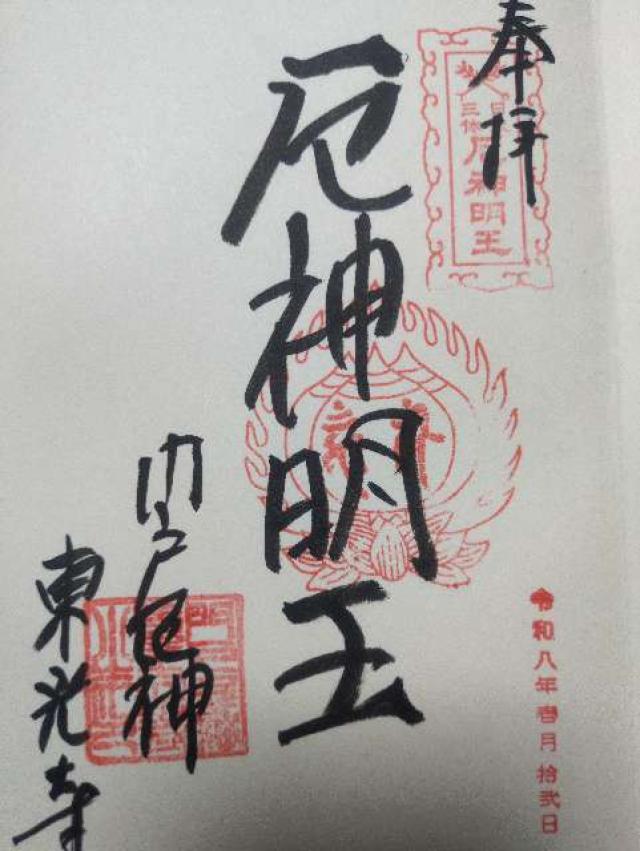 奉拝
日本
三体
厄神明王
厄神明王
令和八年月拾弐日
門戸厄神
東光寺